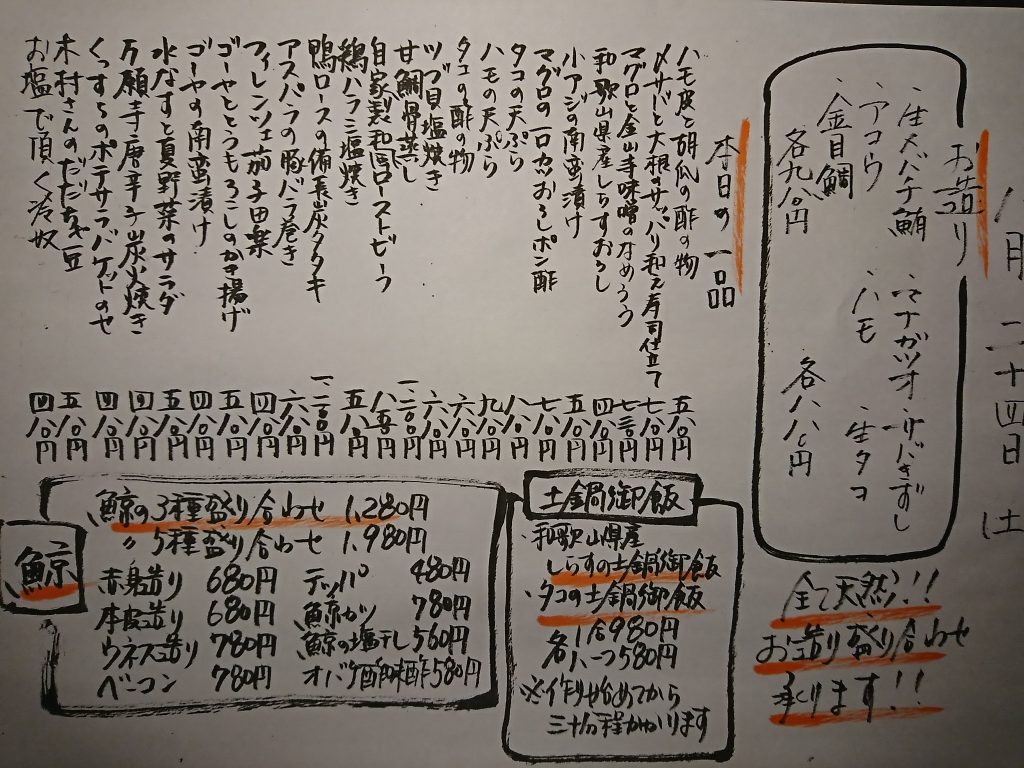 八月二十四日 土
お造り
・生メバチ鮪 ・マナガツオ ・サバきずし
・アコウ ・ハモ ・生タコ
・金目鯛
各九八〇円 各八八〇円
全て天然!!
お造り盛り合わせ
承ります!!
本日の一品
ハモ皮と胡瓜の酢の物 五八〇円
〆サバと大根のサッパリ和え寿司仕立て 七八〇円
マグロと金山寺味噌のなめろう 七三〇円
和歌山県産しらすおろし 四八〇円
小アジの南蛮漬け 五八〇円
マグロの一口カツおろしポン酢 七八〇円
タコの天ぷら 八八〇円
ハモの天ぷら 九八〇円
タコの酢の物 六八〇円
ツブ貝塩焼き 六八〇円
甘鯛骨蒸し 一、二八〇円
自家製和風ローストビーフ 八五〇円
鶏ハラミ塩焼き 五八〇円
鴨ロースの備長炭タタキ 一、二〇〇円
アスパラの豚バラ巻き 六八〇円
フィレンツェ茄子田楽 四八〇円
ゴーヤととうもろこしのかき揚げ 五八〇円
ゴーヤの南蛮漬け 四八〇円
水なすと夏野菜のサラダ 五八〇円
万願寺唐辛子炭火焼き 四八〇円
くっすらのポテサラバゲットのせ 四八〇円
木村さんのだだちゃ豆 五八〇円
お塩で頂く冷奴 四八〇円
土鍋御飯
・和歌山県産
しらすの土鍋御飯
・タコの土鍋御飯
各1合980円
各ハーフ580円
※作り始めてから
三十分程かかります
鯨
鯨の3種盛り合わせ 1,280円
〃 5種盛り合わせ 1,980円
赤身造り 680円 テッパ 480円
本皮造り 680円 鯨カツ 780円
ウネス造り 780円 鯨の塩干し 560円
ベーコン 780円 オバケ酢味噌 580円